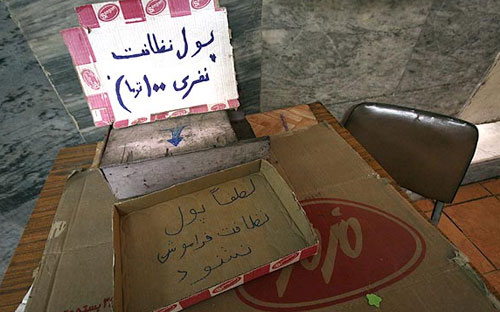 پول نظافت
نفری ۱۰۰ تومان)
لطفاً پول
نظافت فراموش
نشود